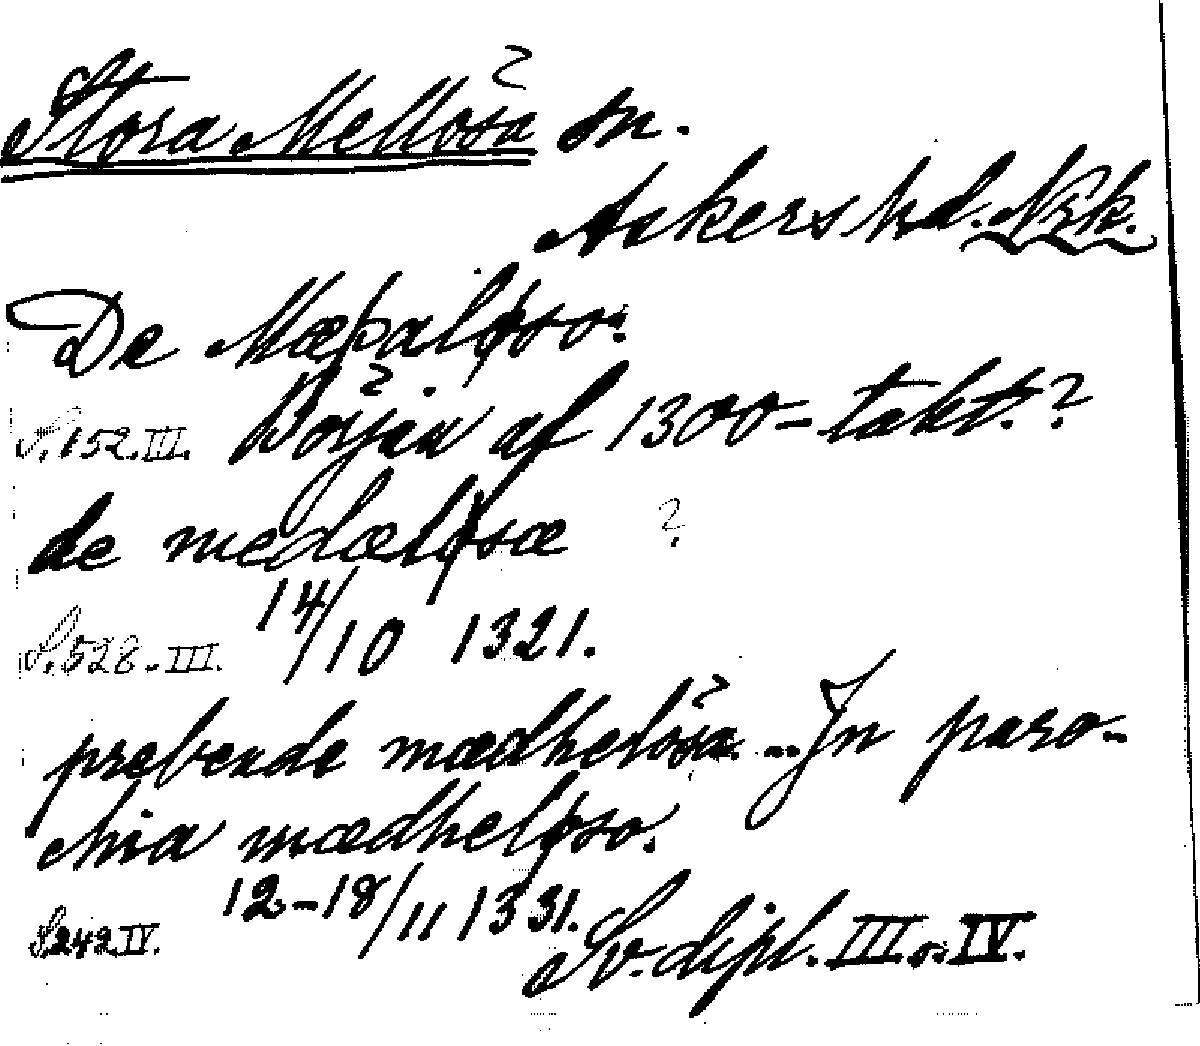 Stora Mellösa sn.
Askers hd. Nrk.
De Mæþaløso.
S. 152. III. Början af 1300-talet.?
de medæløsæ ?
S. 528. III. 14/10 1321.
prebende mædhelösa ... In paro-
chia mædheløso.
S. 242 IV. 12-18/11 1331.
Sv. dipl. III o. IV.